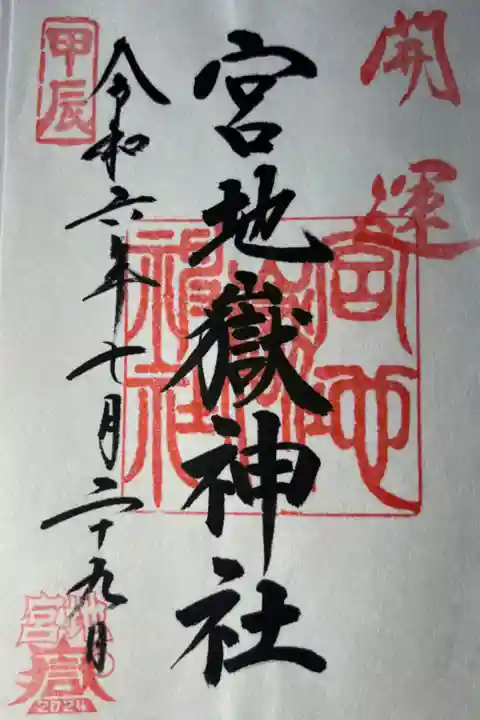 開運
宮地嶽神社
宮地嶽神社
甲辰
令和六年七月二十九日
宮地嶽
2024